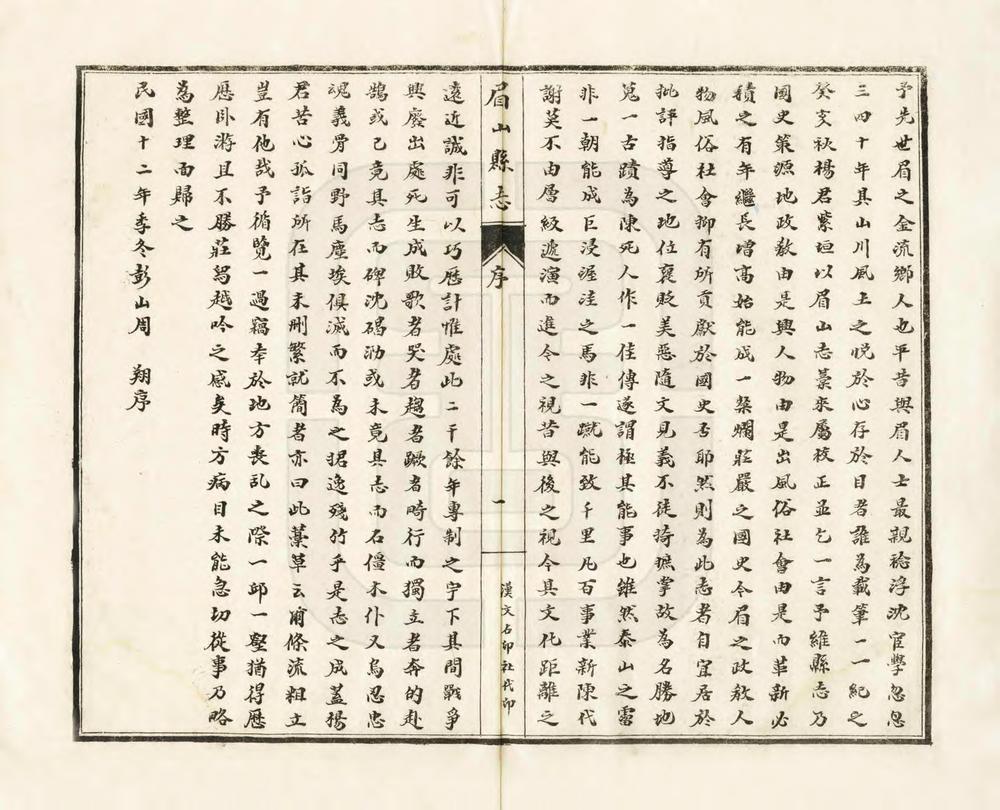 予先世眉之金流鄉人也平昔與眉人士最親稔浮沈宦學忽忽
三四十年其山川風土之悅於心存於目者誰為載筆一一紀之
癸亥秋楊君紫垣以眉山志藁來屬校正並乞一言予維縣志乃
國史策源地政教由是興人物由是出風俗社會由是而革新必
積之有年繼長增高始能成一粲爛莊嚴之國史今眉之政教人
物風俗社會抑有所貢獻於國史否耶然則為此志者自宜居於
批評指導之地位襃貶美惡隨文見義不徒掎摭掌故為名勝地
覓一古蹟為陳死人作一佳傳遂謂極其能事也雖然泰山之霤
非一朝能成巨浸渥洼之馬非一蹴能致千里凡百事業新陳代
謝莫不由層級遞演而進今之視昔與後之視今其文化距離之
眉山縣志 序 一 漢文石印社代印
遠近誠非可以巧厤計惟處此二千餘年專制之宇下其間戰爭
興廢出處死生成敗歌者哭者趨者蹶者畸行而獨立者奔的赴
鵠或已竟其志而碑沈碣泐或未竟其志而石僵木仆又烏忍忠
魂義骨同野馬塵埃俱滅而不為之捃逸殘竹乎是志之成蓋楊
君苦心孤詣所在其未刪繁就簡者亦曰此藁草云爾條流粗立
豈有他哉予循覽一過竊幸於地方喪亂之際一邱一壑猶得歷
歷臥游且不勝莊舄越吟之感矣時方病目未能急切從事乃略
為整理而歸之
民國十二年季冬彭山周 翔序